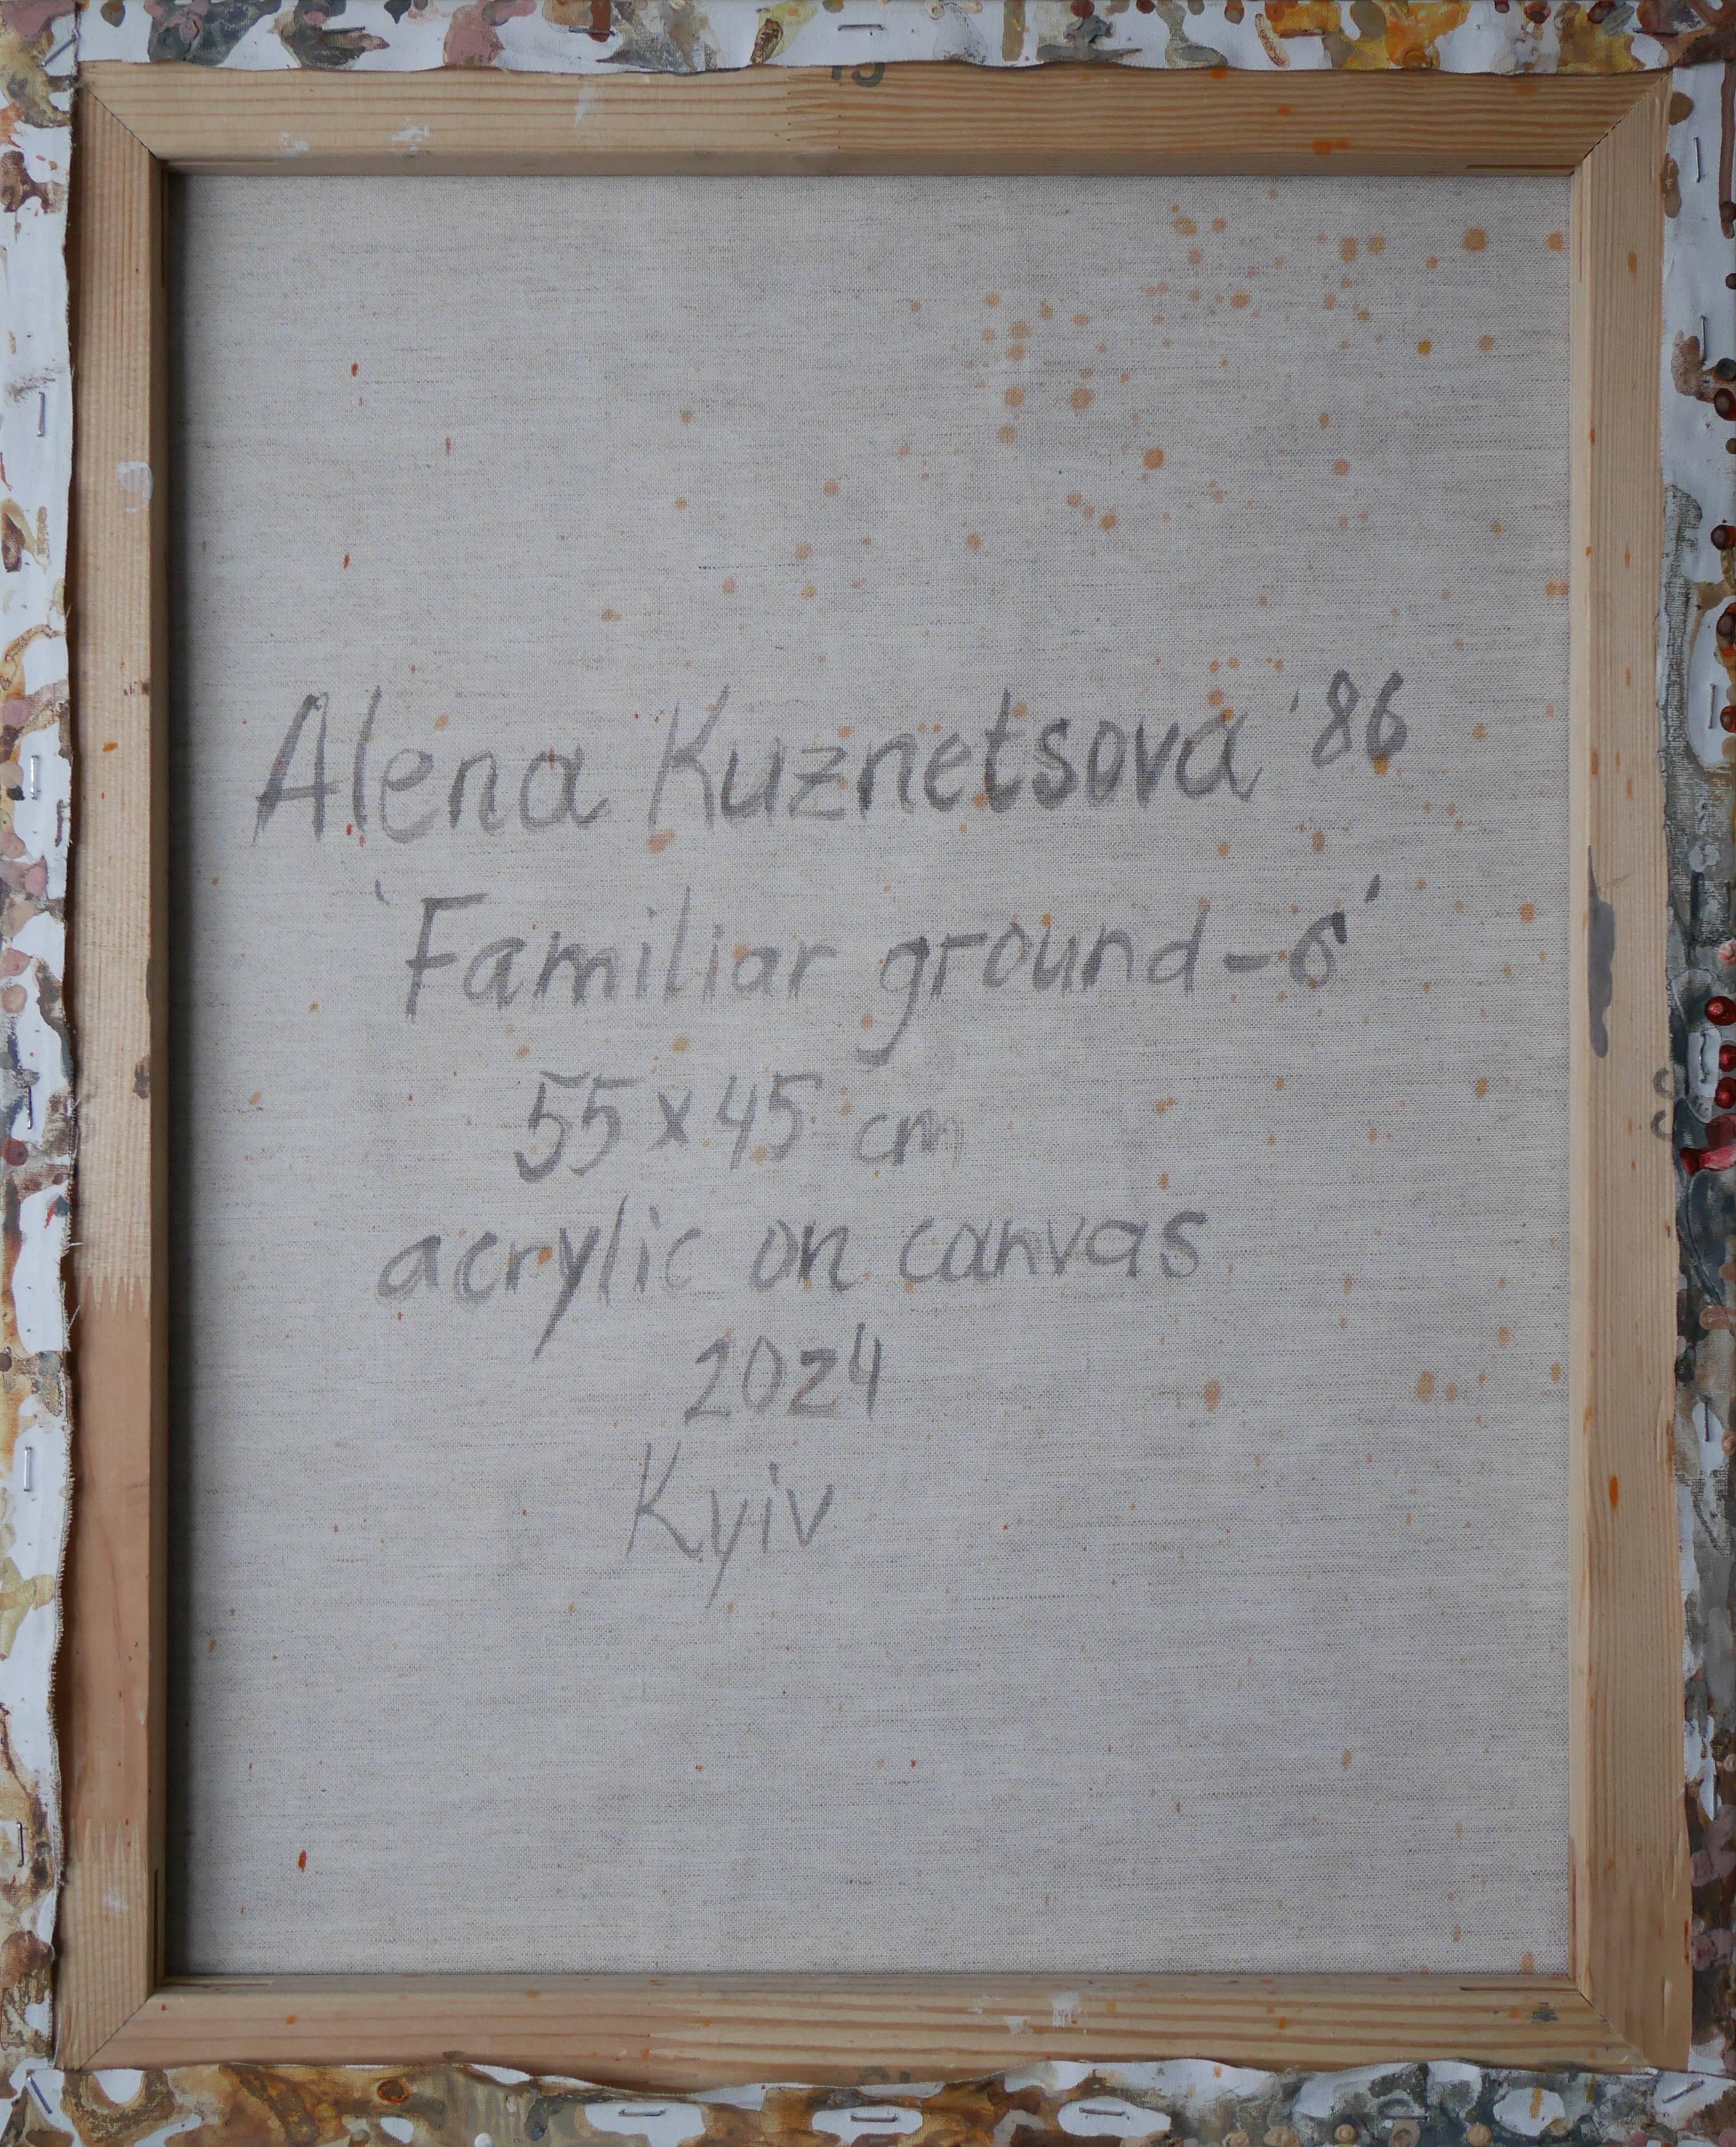 Alena Kuznetsova '86
'Familiar ground-6'
55x45 cm
acrylic on canvas
2024
Kyiv